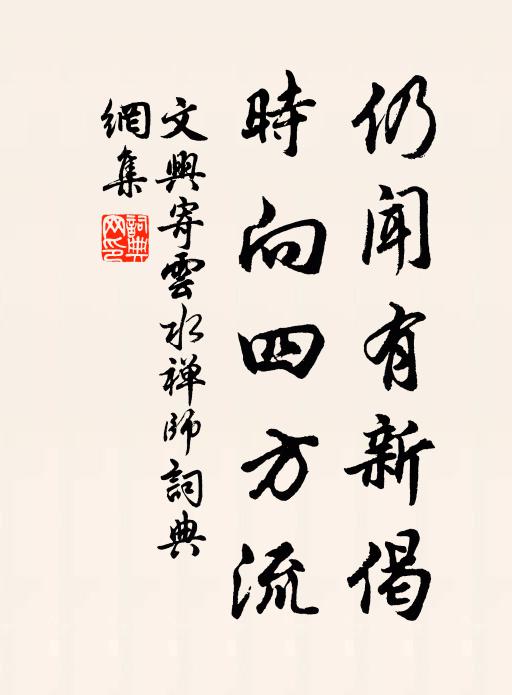 仍聞有新偈
時向四方流
文興寄雲水禅師詞典
網集
詞典網印